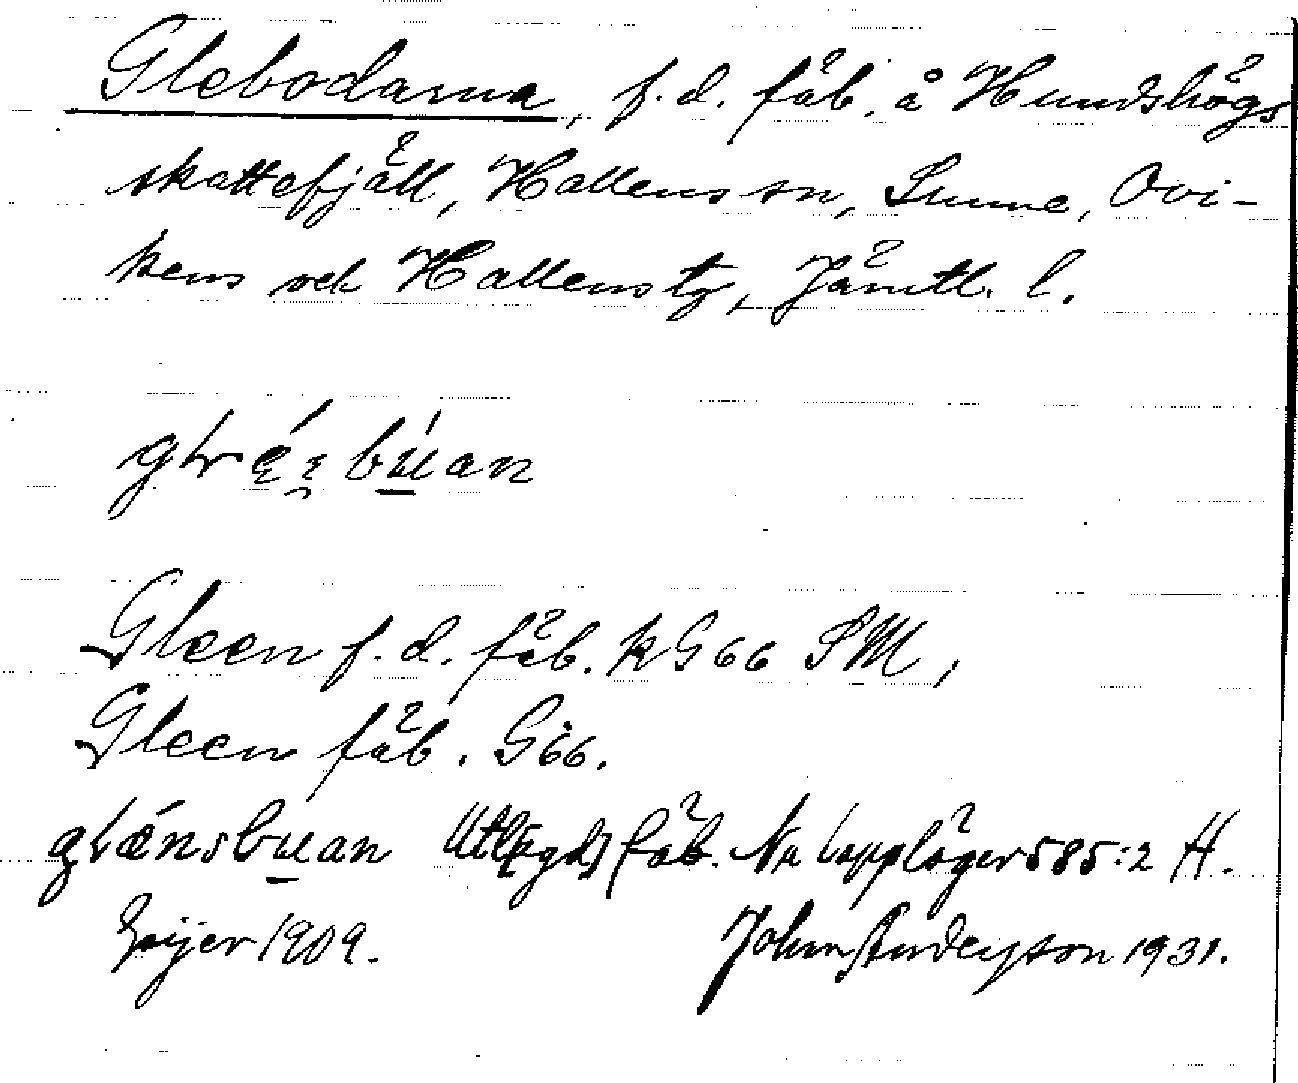 Glebodarna, f.d. fäb. å Hundshögs
skattefjäll, Hallens sn, Sunne, Ovi-
kens och Hallens tg, Jämtl. l.
buan
Gleen f.d. fäb. k G66 SM,
Gleen fäb. G66.
glænsbuan Utlägd fäb. Nu lappläger 585:2 H.
Geijer 1909. John Andersson 1931.